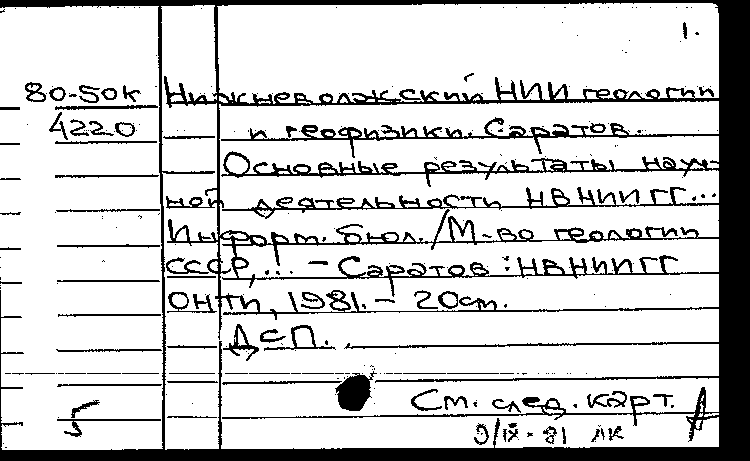 1.
80-50к Нижневолжский НИИ геологии
4220 и геофизики. Саратов.
Основные результаты науч-
ной деятельности НВНИИГГ...
Информ. бюл./М-во геологии
СССР,... - Саратов: НВНИИГГ
ОНТИ, 1981. - 20см.
ДСП.
См. след. карт.
5 9/IX-81 ЛК